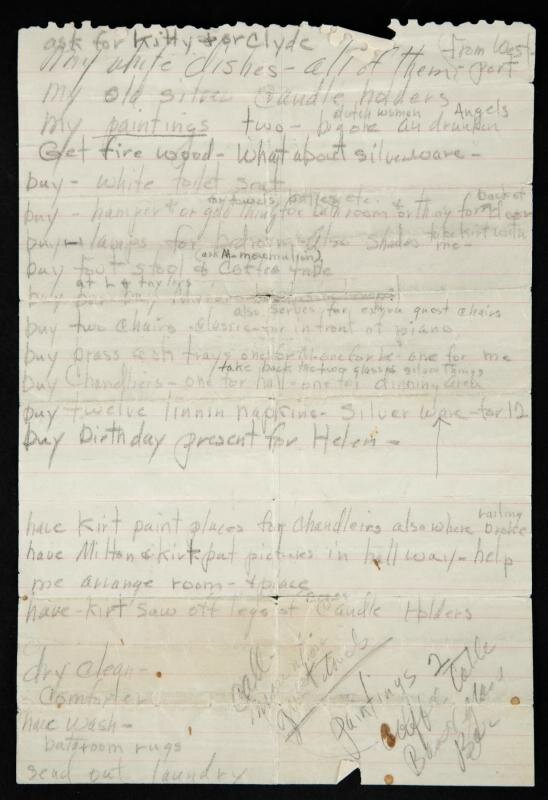 ask for Kitty & or Clyde
(from West-
My white dishes - all of them - port
My old silver candle holders
dutch women Angels
My paintings two - bigone an drunkin
Get fire wood - What about silverware -
buy - white toilet seat
for towels, etc. back of
buy - hamper & or gold thing for bathroom or thing for door
to be kirt with
buy - lamps for bedroom also shades me -
(ask M- museum
buy foot stool & Coffee table
at L & taylors
also serves for extra guest chairs
buy two chairs classic - for in front of piano.
buy brass ash trays one for he - one for me
take back the two glass & silver things
buy Chandliers - one for hall - one for dinning area
buy twelve linnin napkins - silver ware - for 12
buy Birthday present for Helen -
railing
have Kirt paint places for Chandleirs also where Broke
have Milton & Kirk put pictures in hall way - help
me arrange room - & place
have - Kirt saw off legs of Candle Holders
dry clean -
Comforter
have wash -
bathroom rugs
send out laundry
Call
paintings 2